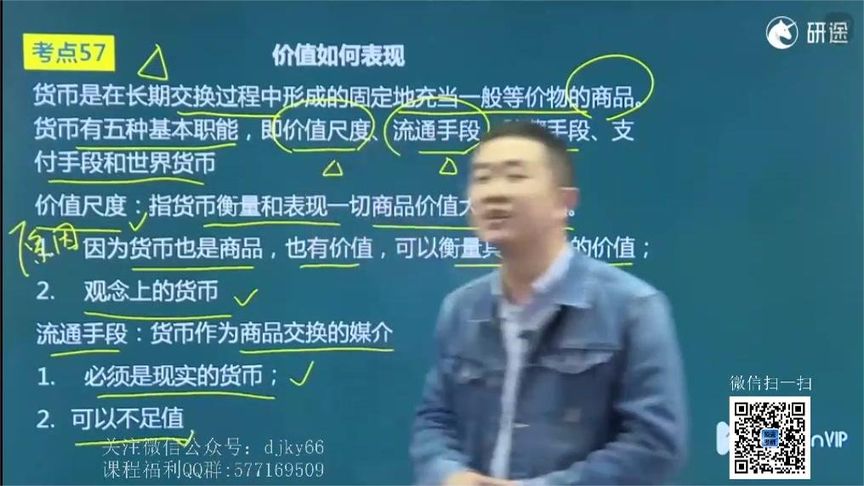 考点57
价值如何表现
研途
货币是在长期交换过程中形成的固定地充当一般等价物的商品。
货币有五种基本职能，即价值尺度、流通手段、 手段、支
付手段和世界货币
价值尺度：指货币衡量和表现一切商品价值大
因为货币也是商品，也有价值，可以衡量其 的价值；
2. 观念上的货币
流通手段：货币作为商品交换的媒介
1. 必须是现实的货币；
2. 可以不足值
微信扫一扫
关注微信公众号：djky66
课程福利QQ群:577169509
VIP